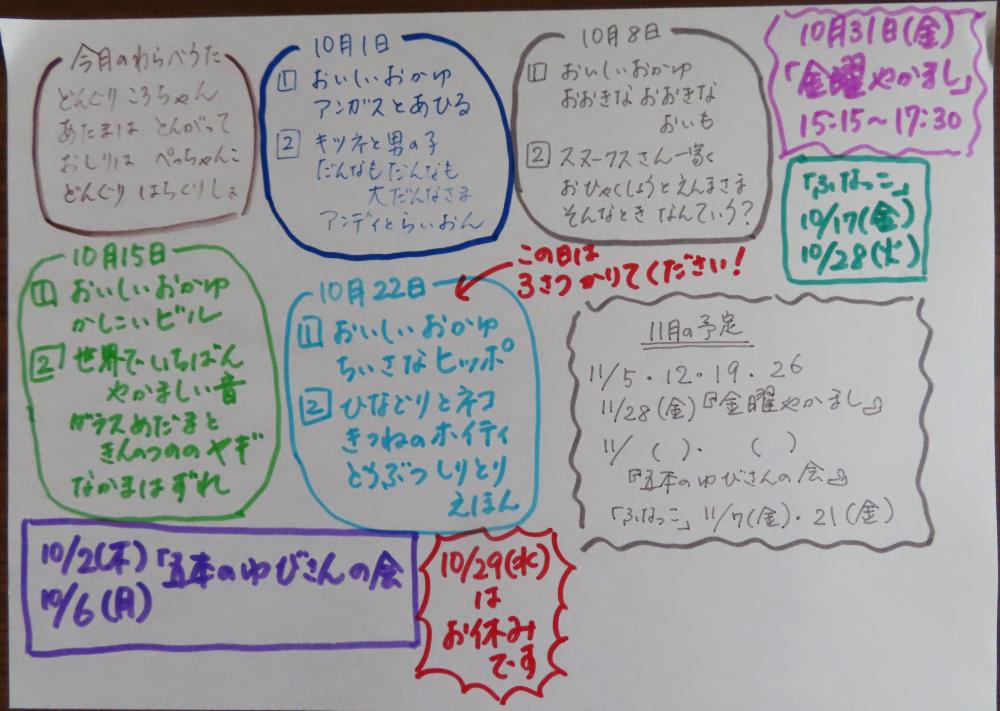 今月のわらべうた
どんぐり ころちゃん
あたまは とんがって
おしりは ぺっちゃんこ
どんぐり はちくりしょ
10月1日
1 おいしいおかゆ
アンガスとあひる
2 キツネと男の子
だんなも だんなも
大だんなさま
アンディとらいおん
10月8日
1 おいしいおかゆ
おおきな おおきな
おいも
2 スヌークスさん一家く
おひゃくしょうとえんまさま
そんなとき なんていう?
10月31日(金)
「金曜やかまし」
15:15~17:30
「ふなっこ」
10/17(金)
10/28(火)
10月15日
1 おいしいおかゆ
かしこいビル
2 世界でいちばん
やかましい音
ガラスめだまと
きんのつののヤギ
なかまはずれ
この日は
3さつかりてください!
10月22日
1 おいしいおかゆ
ちいさなヒッポ
2 ひなどりとネコ
きつねのホイティ
どうぶつしりとり
えほん
11月の予定
11/5・12・19・26
11/28(金)『金曜やかまし』
11/( )・( )
『五本のゆびさんの会』
「ふなっこ」11/7(金)・21(金)
10/2(木)「五本のゆびさんの会
10/6(月)
10/29(水)
は
お休み
です